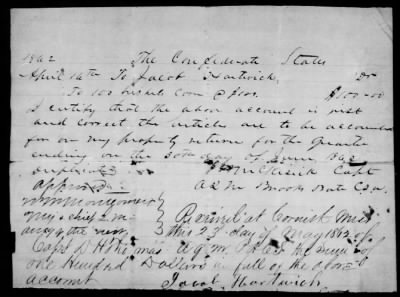 1862 The Confederate States
April 14th To Jacob Hartwick Dr
To 100 bushels Corn @ $100. $100.00
I certify that the above account is just
and correct the articles are to be accounted
for on my property return for the Quarter
ending on the 30th day of June 1862
duplicate Capt
approved A.Q.M. C.S.A.
Montgomery
Maj & chief Received at Corinth Miss
this 23 day of May 1862 of
Capt A.Q.M. the sum of
one Hundred Dollars in full of the above
account Jacob Hartwick